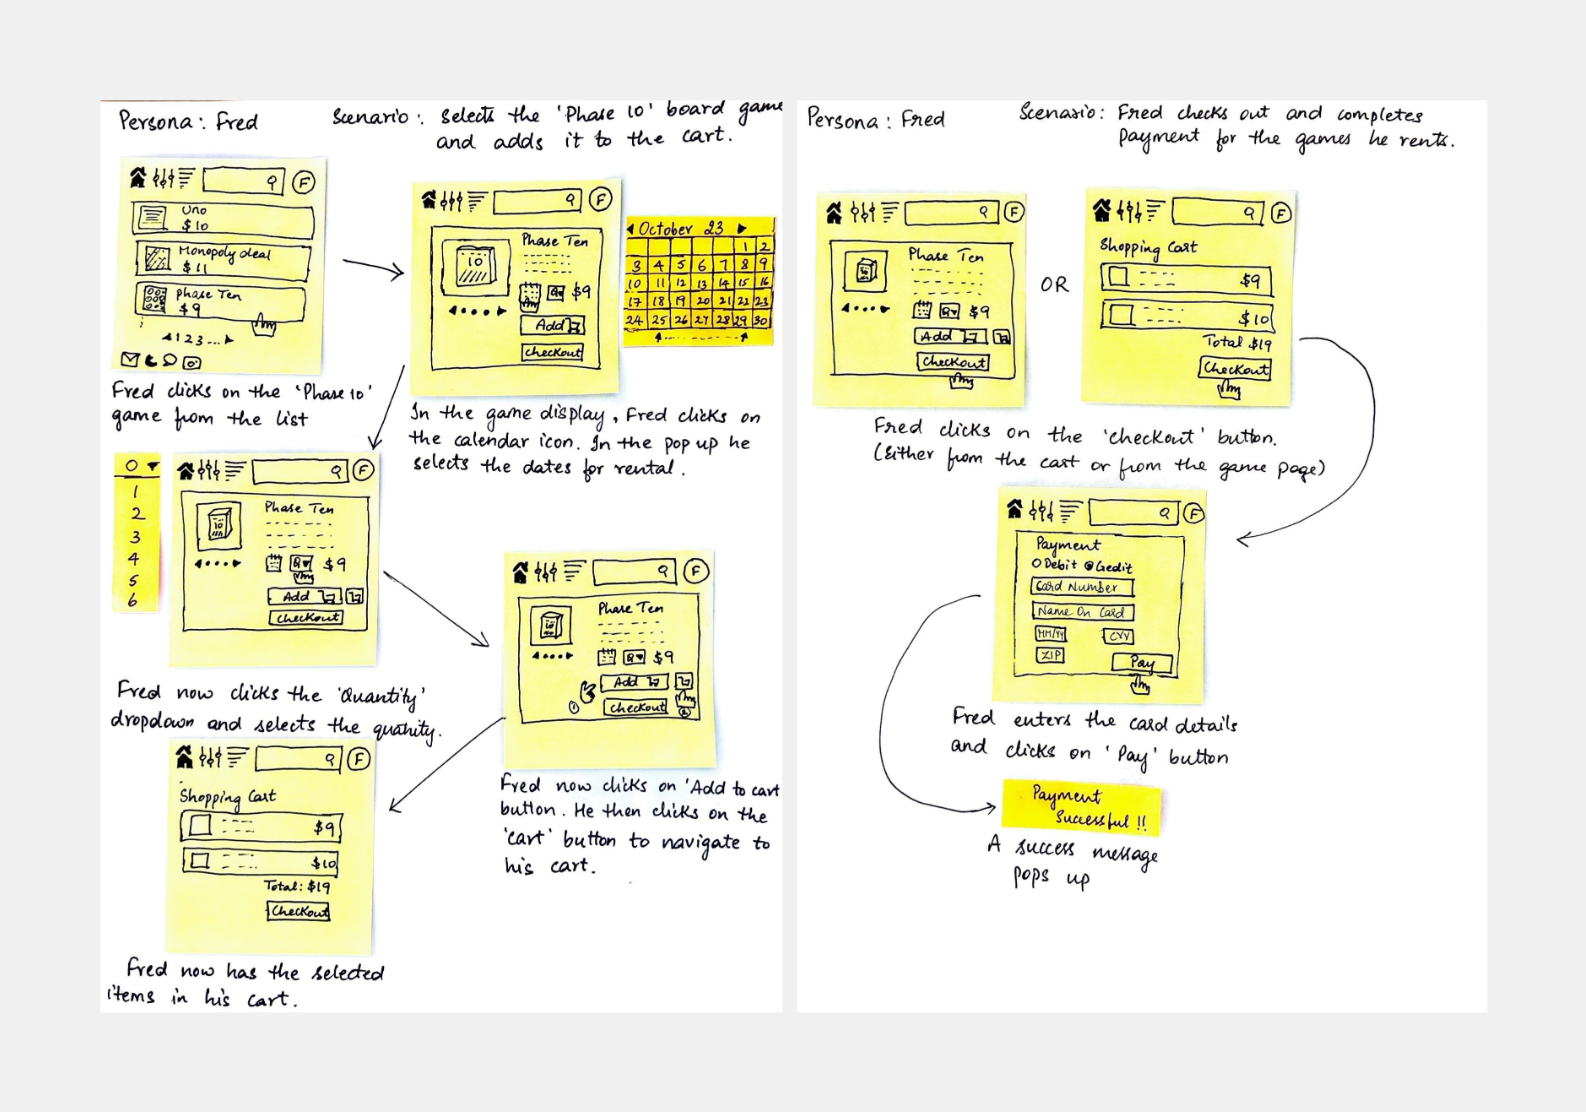 Persona: Fred
Scenario: Selects the 'Phase 10' board game
and adds it to the cart.
F
Uno
$10
Monopoly deal
$11
Phase Ten
$9
1 2 3 ...
Fred clicks on the 'Phase 10'
game from the list
F
Phase Ten
10
$9
Add
Checkout
October 23
1 2
3 4 5 6 7 8 9
10 11 12 13 14 15 16
17 18 19 20 21 22 23
24 25 26 27 28 29 30
In the game display, Fred clicks on
the calendar icon. In the pop up he
selects the dates for rental.
0
1
2
3
4
5
6
F
Phase Ten
10
$9
Add
Checkout
Fred now clicks the 'Quantity'
dropdown and selects the quanity.
F
Phase Ten
10
$9
Add
Checkout
1
2
Fred now clicks on 'Add to cart
button. He then clicks on the
'cart' button to navigate to
his cart.
F
Shopping Cart
$9
$10
Total: $19
Checkout
Fred now has the selected
items in his cart.
Persona: Fred
Scenario: Fred checks out and completes
Payment for the games he rents.
F
Phase Ten
10
$9
Add
Checkout
OR
F
Shopping Cart
$9
$10
Total $19
Checkout
Fred clicks on the 'checkout' button.
(Either from the cart or from the game page)
F
Payment
Debit Credit
Card Number
Name On Card
MM/YY CVV
ZIP
Pay
Fred enters the card details
and clicks on 'Pay' button
Payment
Successful !!
A success message
pops up